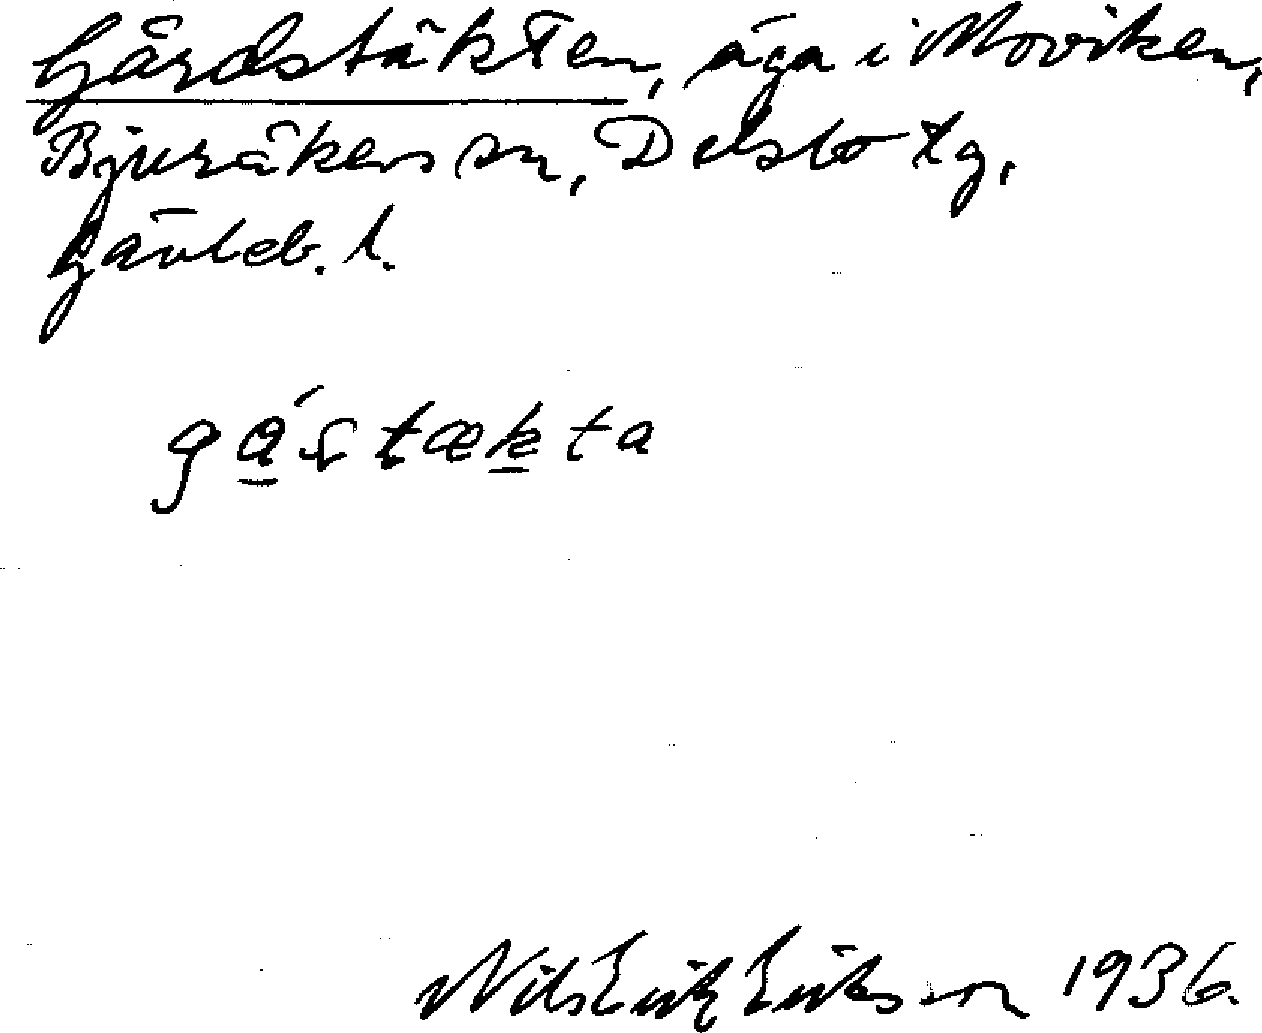 Gårdstäkten, äga i Moviken,
Bjuråkers sn, Delsbo tg,
Gävleb. l.
Nils Erik Eriksson 1936.